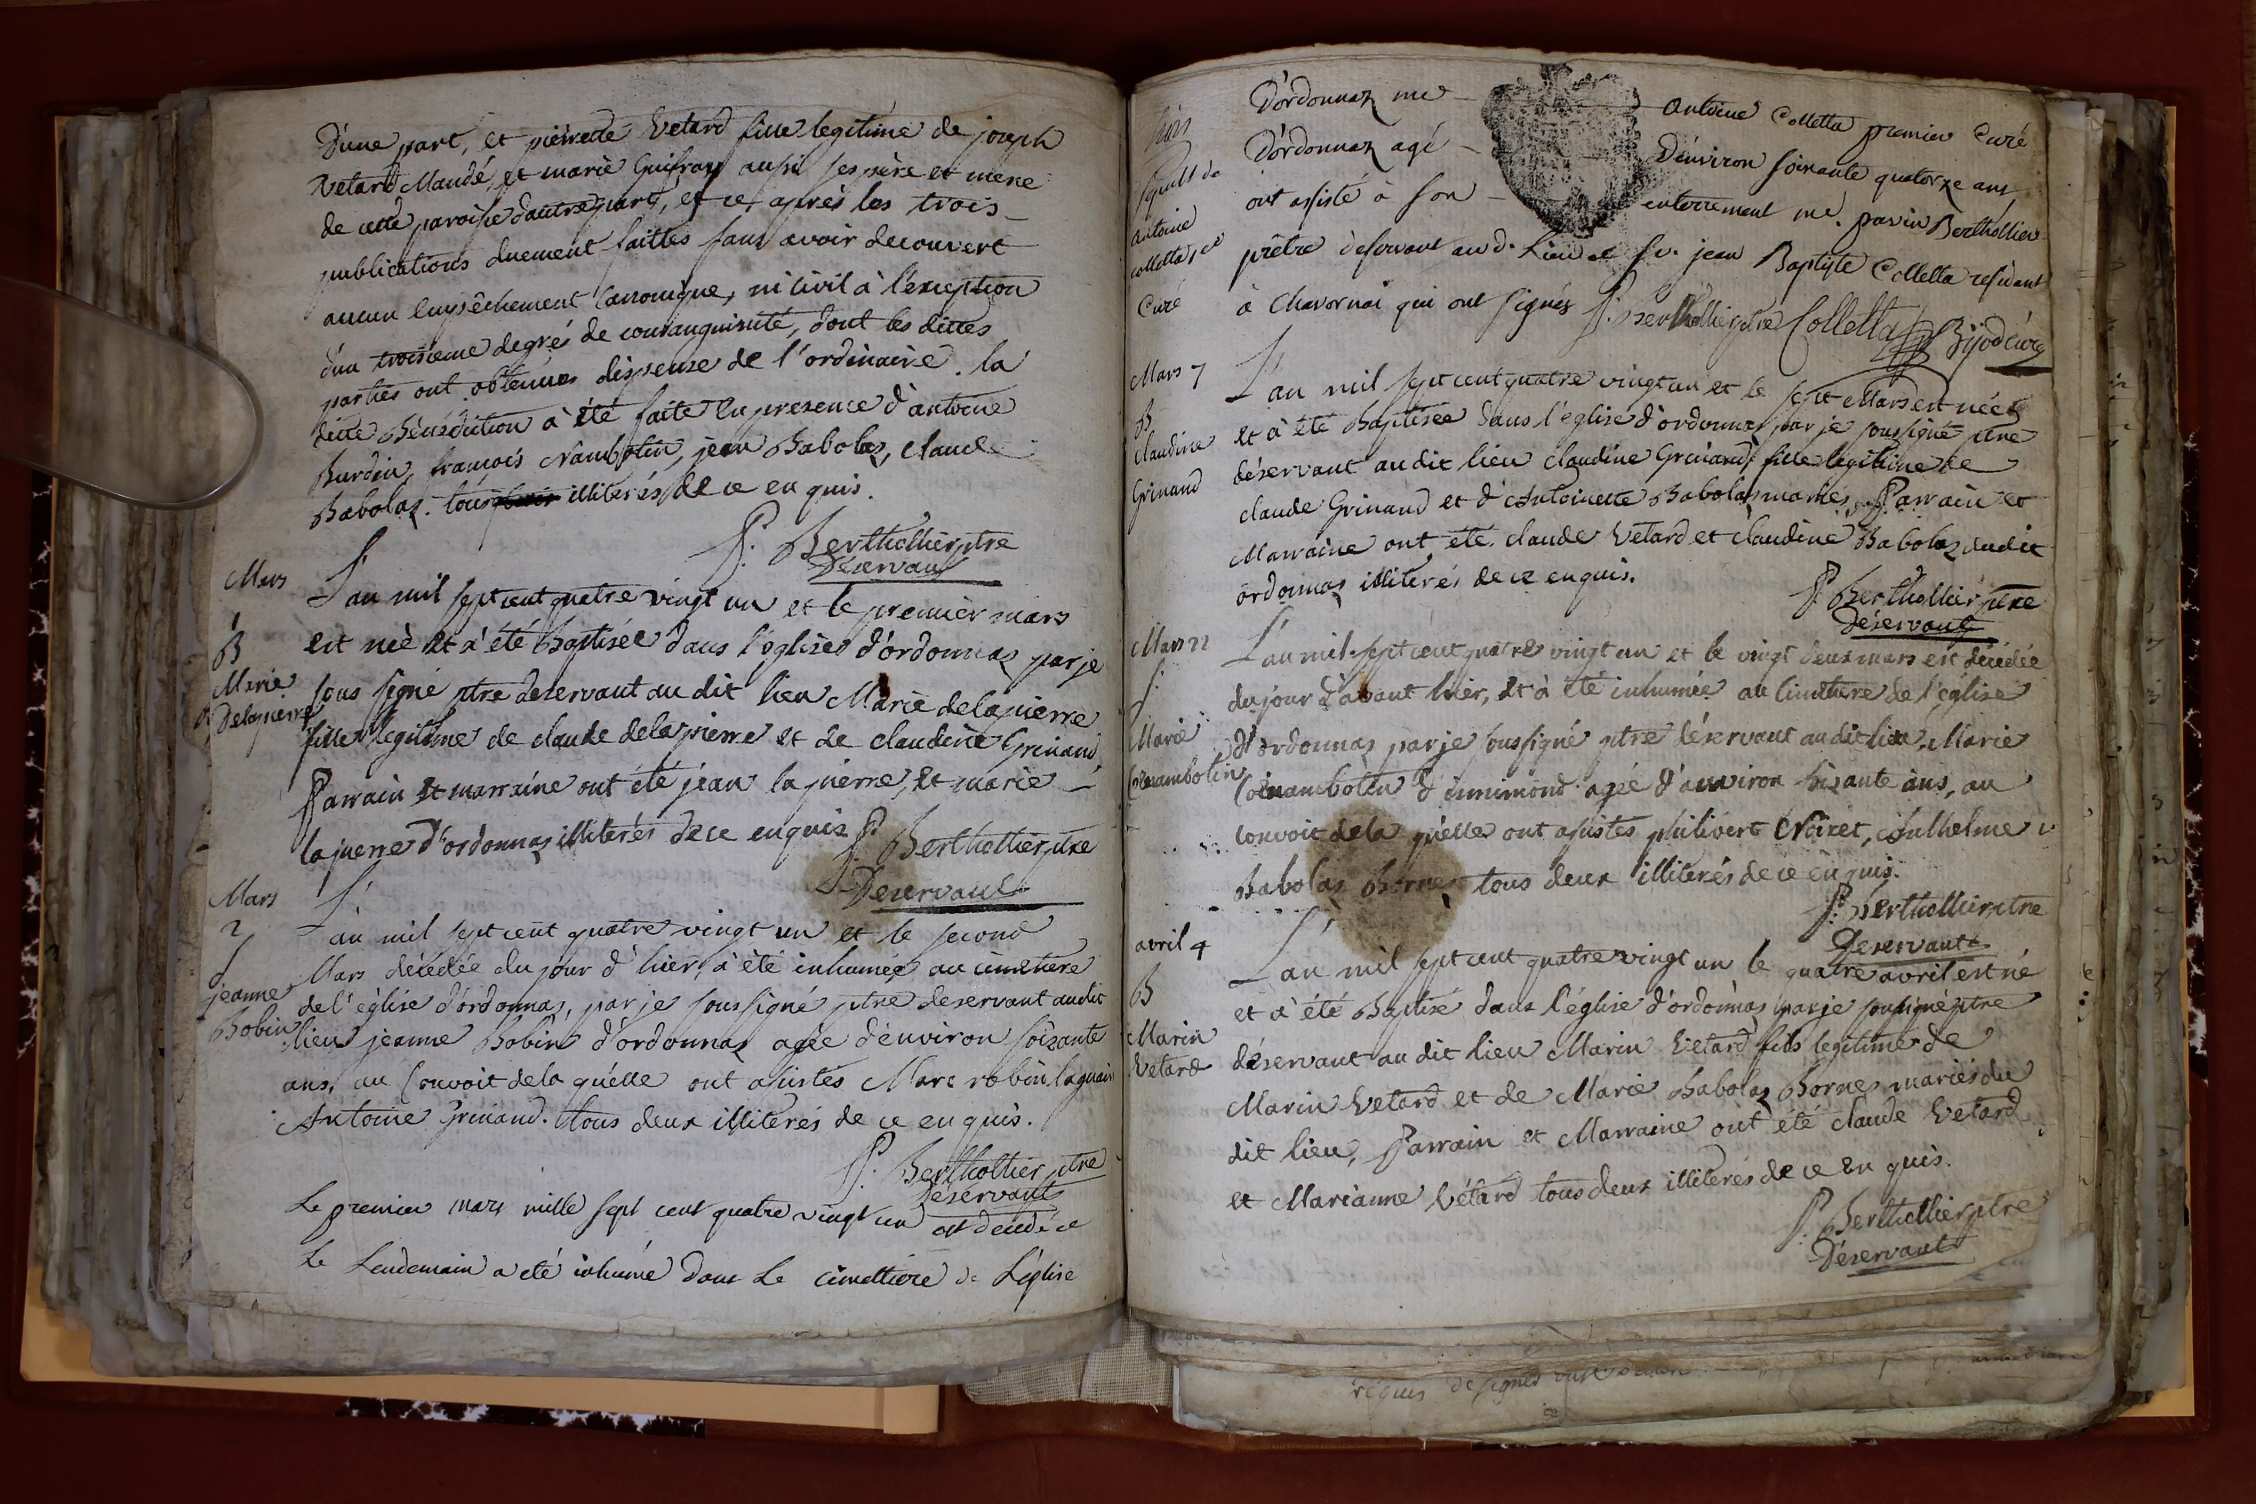 D'une part, et pierrette Vetard fille legitime de joseph
Vetard Maudé, et marie Guifray aussi ses père et mere
de cette paroisse d'autre part, et ce, aprés les trois
publications duement faittes sans avoir decouvert
aucun Empêchement Canonique, ni civil à l'exeption
d'un troisieme degrés de consanguinité, dont les dittes
parties ont obtenues dispense de l'ordinaire. la
ditte Bénédiction à été faite En presence d'antoine
Burdin, francois Nambotin, jean Babolas, claude
Babolaz. tous illiterés de ce en quis.
P. Berthollier ptre
Deservant
Mars
B
Marie
Delapierre
L'an mil sept cent quatre vingt un et le premier mars
est neé et à été Baptisée dans l'eglise d'ordonnaz par je
sous signé ptre deservant au dit lieu Marie delapierre
fille legitime de claude delapierre et de claudine Grinand
Parrain et marraine ont été jean la pierre, et marie
la pierre d'ordonnaz illiterés de ce enquis
P. Berthollier ptre
Deservant
Mars
2
S
jeanne
Bobin
L'an mil sept cent quatre vingt un et le second
Mars décédée du jour d'hier, à été inhumée au cimetiere
de l'église d'ordonnas, par je soussigné ptre deservant au dit
lieu jeanne Bobin d'ordonnaz agée d'environ soixante
ans, au Convoit de la quelle ont assistés Marc robin
Antoine Grinand. tous deux illiterés de ce en quis.
P. Berthollier ptre
Déservant
Le premier mars mille sept cent quatre vingt un est decedé et
Le Lendemain a eté inhumé dans Le cimettiere de L'église
Sépult de
antoine
colletta
Curé
D'ordonnaz me antoine Colletta premier Curé
D'ordonnaz agé D'environ soixante quatorze ans
ont assisté à son enterrement me. Berthollier
prêtre deservant aud. Lieu et sr. jean Baptiste Colletta residant
à Chavornai qui ont signés P. Berthollier ptre Colletta
Mars 7
B
Claudine
Grinand
L'an mil sept cent quatre vingt un et le sept Mars est née
et à été Baptisée dans l'église d'ordonnaz par je soussigné ptre
déservant au dit lieu claudine Grinand fille legitime de
claude Grinand et d'Antoinette Babolaz mariés, Parrain et
Marraine ont été claude Vetard et claudine Babolaz dudit
ordonnaz illiterés de ce enquis.
P. Berthollier ptre
Déservant
Mars 22
S.
Marie
L'an mil sept cent quatre vingt un et le vingt deux mars est décédée
du jour d'avant hier, et à été inhumée au cimetiere de l'église
d'ordonnas par je soussigné ptre déservant au dit lieu, Marie
d'innimond agée d'environ soixante ans, au
Convoit de la quelle ont assistés philibert
Babolaz Bornes tous deux illiterés de ce en quis.
P. Berthollier ptre
Deservant
avril 4
B
Marin
Vetard
L'an mil sept cent quatre vingt un le quatre avril est né
et à été Baptisé dans l'église d'ordonnas par je soussigné ptre
déservant au dit lieu Marin Vetard fils legitime de
Marin Vetard et de Marie Babolaz Bornes mariés du
dit lieu, Parrain et Marraine ont été claude Vetard
et Marianne Vétard tous deux illiterés de ce en quis.
P. Berthollier ptre
Déservant